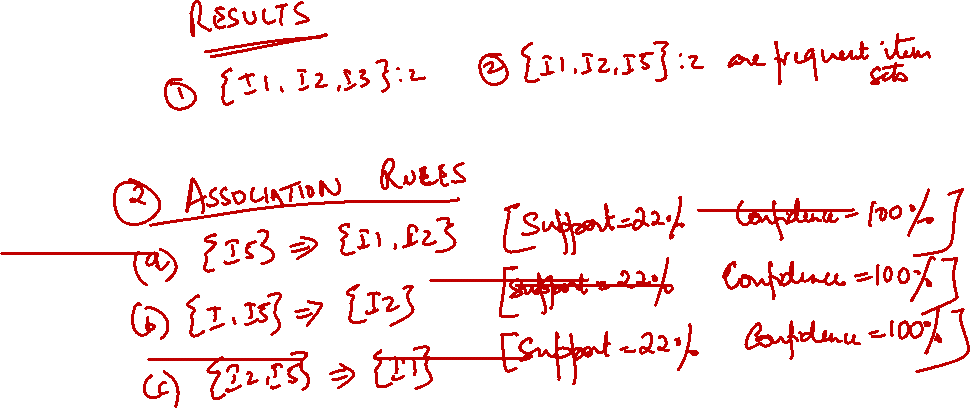 RESULTS
① {I1, I2, I3}:2 ② {I1, I2, I5}:2 are frequent item sets
② ASSOCIATION RULES
(a) {I5} ⇒ {I1, I2} [Support=22% Confidence=100%]
(b) {I, I5} ⇒ {I2} [Support=22% Confidence=100%]
(c) {I2, I5} ⇒ {I1} [Support=22% Confidence=100%]